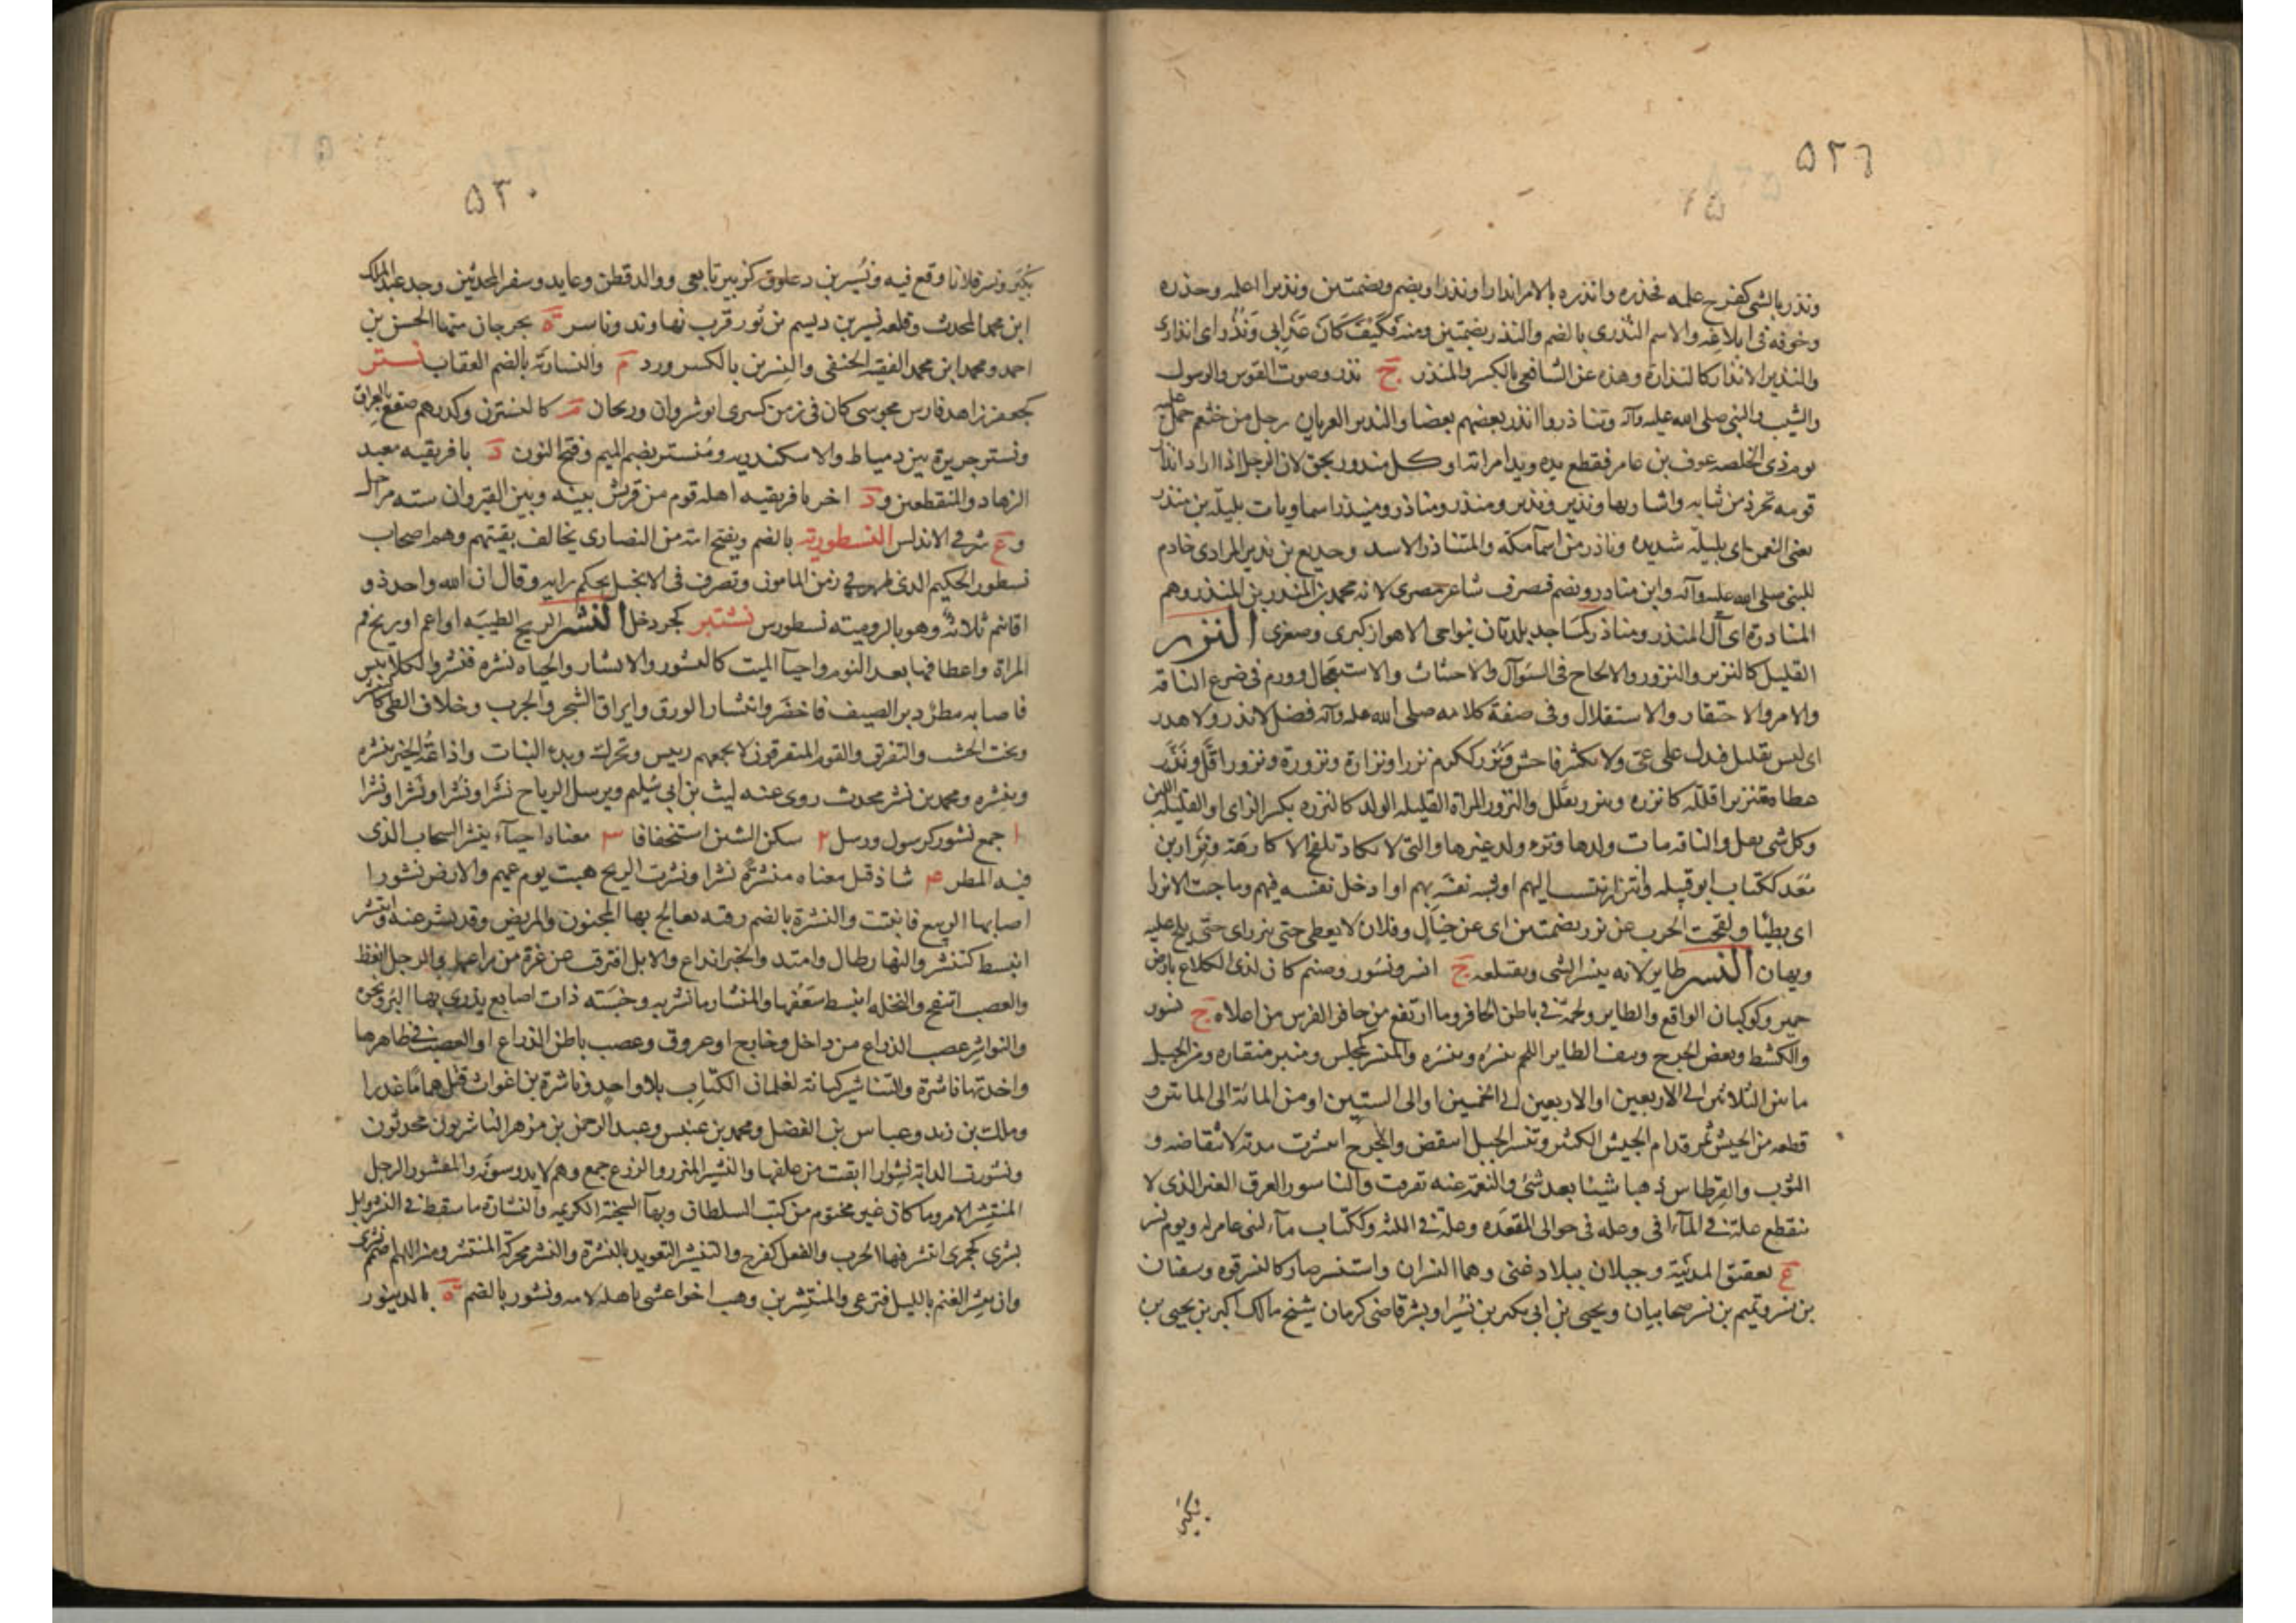 ۵۲٦
ونذر بالشی کفرح علمه فحذره وانذره بالامر انذارا ونذرا ویضم وبضمتین ونذیرا اعلمه وحذره
وخوفه فی ابلاغه والاسم النذری بالضم والنذر بضمتین ومنه فَکَیْفَ کَانَ عَذَابِی وَنُذُر ای انذاری
والنذیر الانذار کالنذارة وهذه عن الشافعی بالکسر والمنذر ج نذر وصوت القوس والرسول
والشیب والنبی صلی الله علیه وآله وتناذروا انذر بعضهم بعضا والنذیر العریان رجل من خثعم حمل علیه
یوم ذی الخلصه عوف بن عامر فقطع یده وید امراته او کل منذور بحق لان الرجل اذا اراد انذار
قومه تجرد من ثیابه واشار بها ونذیر ونذیر ومنذر ومناذر ومنیذر اسما وبات بلیلة بن منذر
یعنی النعمن ای بلیلة شدیده وناذر من اسمآ مکة والمتناذر الاسد وجدیع بن نذیر المرادی خادم
للنبی صلی الله علیه وآله وابن مناذر ویضم فیصرف شاعر بصری لانه محمد بن المنذر بن المنذر وهم
المناذرة ای آل المنذر ومناذر کمساجد بلدتان بنواحی الاهواز کبری وصغری النزر
القلیل کالنزیر والنزور والالحاح فی السوآل والاحتثاث والاستعجال وورم فی ضرع الناقة
والامر والاحتقار والاستقلال وفی صفة کلامه صلی الله علیه وآله فضل لا نذر ولا هدر
ای لیس بقلیل فیدل علی عی ولا بکثیر فاحش ونزر ککرم نزرا ونزارة ونزورة ونزورا قل ونزر
عطاه تنزیرا قلله کانزره وتنزر تقلل والنزور المراة القلیله الولد کالنزره بکسر الزای او القلیله اللبن
وکل شی یقل والناقه مات ولدها وترءم ولد غیرها والتی لا تکاد تلقح الا کارهة ونزار بن
مَعَد ککتاب ابو قبیله وتنزر انتسب الیهم او تشبه بهم او ادخل نفسه فیهم وما جئت الا نزرا
ای بطیئا ولقحت الحرب عن نزر بضمتین ای عن حیال وفلان لا یعطی حتی ینزر ای حتی یلح علیه
ویهان النسر طایر لانه ینسر الشی ویقتلعه ج انسر ونسور وصنم کان لذی الکلاع بارض
حمیر وکوکبان الواقع والطایر ولحمة فی باطن الحافر وما ارتفع من حافر الفرس من اعلاه ج نسور
والکشط ونقض الجرح ونتف الطایر اللحم ینسِرُه وینسُره والمنسر کمجلس ومنبر منقاره ومن الخیل
ما بین الثلاثین الی الاربعین او الاربعین الی الخمسین او الی الستین او من المائة الی الماتین و
قطعه من الجیش تمر قدام الجیش الکثیر وتنسر الحبل انتقض والجرح انتشرت مدته لانتقاضه و
الثوب والقرطاس ذهبا شیئا بعد شئ والنعمة عنه تفرقت والناسور العرق الغبر الذی لا
ینقطع علة فی المآقی وعله فی حوالی المقعده وعلة فی اللثه وککتاب مآء لبنی عامر له ویوم نسر
ع بعقیق المدینة وجبلان ببلاد غنی وهما النسران واستنسر صار کالنسر قوه وسفیان
بن نسر وتمیم بن نسر صحابیان ویحیی بن ابی بکیر بن نسر او بشر قاضی کرمان شیخ مالک اکبر بن یحیی بن
بکیر
۵۳۰
بُکَیر ونسر فلانا وقع فیه ونُسَیر بن دعلوق کزبیر تابعی ووالد قطن وعاید وسفر المحدثین وجد عبدالملک
ابن محمد المحدث وقلعه نسیر بن دیسم بن ثور قرب نهاوند وناسر ة بجرجان منها الحسن بن
احمد ومحمد ابن محمد الفقیه الحنفی والنسرین بالکسر ورد م والنساریة بالضم العقاب نستر
کجعفر زاهد فارس مجوسی کان فی زمن کسری انوشروان وریحان م کالنسترن وکدرهم صقع بالعراق
ونستر جزیرة بین دمیاط والاسکندریه ومُنستیر بضم المیم وفتح النون د بافریقیه معبد
الزهاد والمنقطعین ود اخر بافریقیه اهله قوم من قریش بینه وبین القیروان سته مراحل
وع شرقی الاندلس النسطوریة بالضم ویفتح امة من النصاری یخالف بقیتهم وهم اصحاب
نسطور الحکیم الذی ظهر فی زمن المامون وتصرف فی الانجیل بحکم رایه وقال ان الله واحد ذو
اقانیم ثلاثة وهو بالرومیته نسطورس نشتبر کجردحل النشر الریح الطیبه او اعم او ریح فم
المراة واعطافها بعد النوم واحیآ المیت کالنشور والانشار والحیاه نشره فنشر والکلا یبس
فاصابه مطر دبر الصیف فاخضر وانتشار الورق وایراق الشجر والجرب وخلاف الطی کالتنشیر
ونحت الخشب والتفرق والقوم المتفرقون لا یجمعهم رییس ویحرک وبدء النبات واذاعة الخبر ینشره
وینشره ومحمد بن نشر محدث روی عنه لیث بن ابی سُلیم ویرسل الریاح نَشرا ونُشُرا ونُشرا ونَشَرا
۱ جمع نشور کرسول ورسل ۲ سکن الشین استخفافا ۳ معناه احیآء ینشر السحاب الذی
فیه المطر ۴ شاذ قیل معناه منشرة نشرا ونشرت الریح هبت یوم غیم والارض نشورا
اصابها الربیع فانبتت والنشرة بالضم رقیة یعالج بها المجنون والمریض وقد نشر عنه وانتشر
انبسط کتنشر والنهار طال وامتد والخبر انذاع والابل افترقت عن غرة من راعیها والرجل انعظ
والعصب انتفخ والنخله انبسط سَعَفُها والمنشار ما نشر به وخشبة ذات اصابع یذری بها البر ونحوه
والنواشر عصب الذراع من داخل وخارج او عروق وعصب باطن الذراع او العصب فی ظاهرها
واحدتها ناشرة والتناشیر کتابة لغلمان الکتاب بلا واحد وناشرة بن اغواث قتل هماما غدرا
ومالک بن زید وعباس بن الفضل ومحمد بن عنبس وعبد الرحمن بن مزهر الناشریون محدثون
ونشورت الدابة نشوارا ابقت من علفها والنشیر المئزر والزرع جمع وهم لا یدوسونه والمنشور الرجل
المنتشر الامر وما کان غیر مختوم من کتب السلطان وبهآ السخیة الکریمه والنشارة ما سقط فی النشر وابل
نشری کجمزی انتشر فیها الجرب والفعل کفرح والتنشیر التعویذ بالنشرة والنشر محرکة المنتشر ومنه اللهم اضمم نشری
وان ینتشر الغنم باللیل فترعی والمنتشر بن وهب اخو اعشی باهله لامه ونشور بالضم ة بالدینور